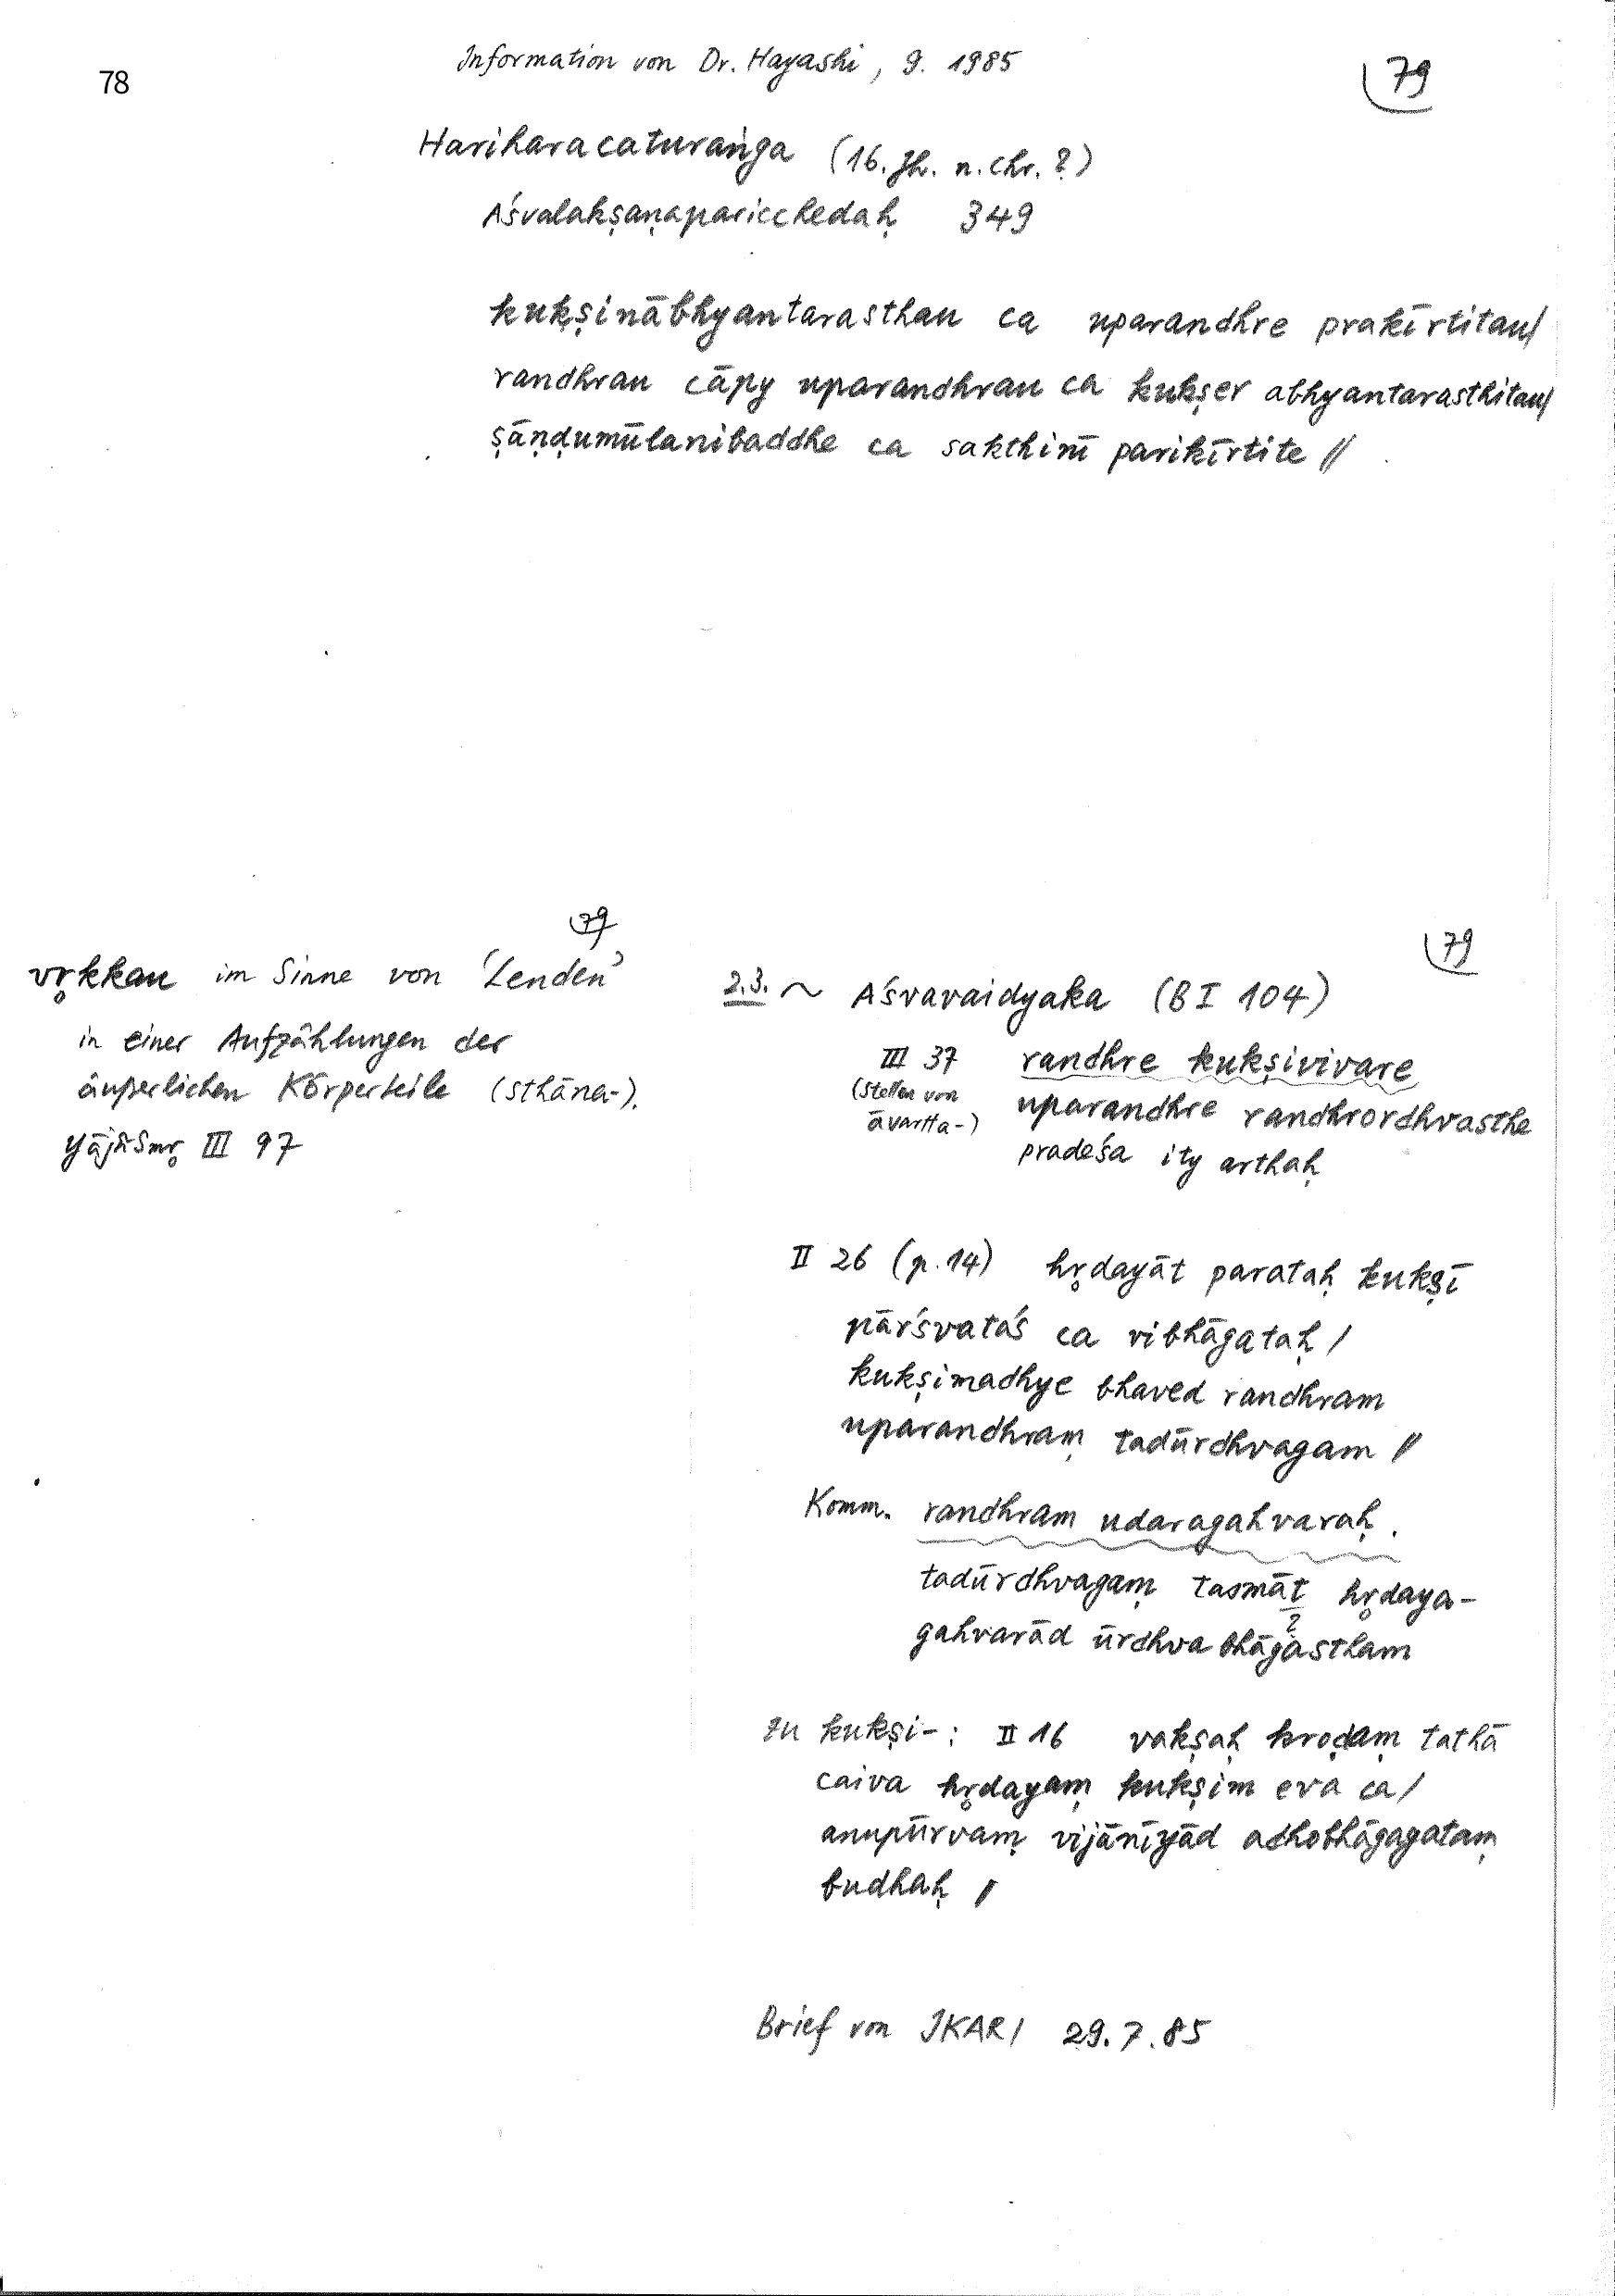 78
Information von Dr. Hayashi, 9. 1985
79
Hariharacaturaṅga (16. Jh. n. Chr. ?)
Aśvalakṣaṇaparicchedaḥ 349
kukṣinābhyantarasthau ca uparandhre prakīrtitau/
randhrau cāpy uparandhrau ca kukṣer abhyantarasthitau/
ṣāṇḍumūlanibaddhe ca sakthinī parikīrtite //
79
vr̥kkau im Sinne von 'Lenden'
in einer Aufzählungen der
äußerlichen Körperteile (sthāna-).
YājñSmr̥ III 97
79
2.3. ~ Aśvavaidyaka (BI 104)
III 37 randhre kukṣivivare
(Stellen von
āvartta-) uparandhre randhrordhvasthe
pradeśa ity arthaḥ
II 26 (p. 14) hr̥dayāt parataḥ kukṣī
pārśvataś ca vibhāgataḥ /
kukṣimadhye bhaved randhram
uparandhraṃ tadūrdhvagam //
Komm. randhram udaragahvaraḥ.
tadūrdhvagaṃ tasmāt hr̥daya-
?
gahvarād ūrdhvabhāgastham
zu kukṣi-: II 16 vakṣaḥ kroḍaṃ tathā
caiva hr̥dayaṃ kukṣim eva ca /
anupūrvaṃ vijānīyād adhobhāgagataṃ
budhaḥ //
Brief von IKARI 29.7.85